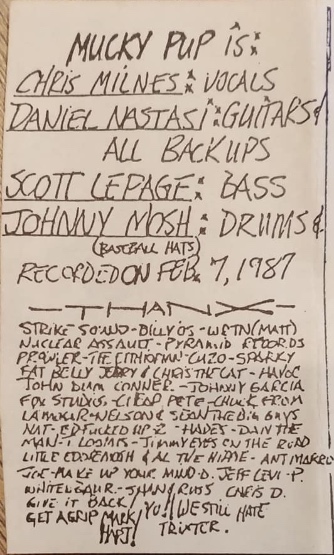 MUCKY PUP is:
CHRIS MILNES: VOCALS
DANIEL NASTASI: GUITARS &
ALL BACKUPS
SCOTT LEPAGE: BASS
JOHNNY MOSH: DRUMS &
(BASEBALL HATS)
RECORDED ON FEB. 7, 1987
-THANX-
STRIKE SOUND-BILLY OS-WRTN(MATT)
NUCLEAR ASSAULT-PYRAMID RECORDS
PROWLER-THE ETHIOPIAN-CUZO-SPARKY
FAT BELLY JERRY & CHRIS THE CAT-HAVOC
JOHN CONNER-JOHNNY GARCIA
FOX STUDIOS-CHEAP PETE-CHUCK FROM
LAMOUR-NELSON & SEAN THE BIG GUYS
NAT-ED FUCKED UP 2-HADES-DAN THE
MAN-I LOOMIS-JIMMY EYES ON THE ROAD
LITTLE & AL THE HIPPIE-ANT MARRO
JOE-MAKE UP YOUR MIND D. JEFF LEVI-P.
RUSS D.
GIVE IT BACK/YO! WE STILL HATE
GET A GRIP MARK TRIXTER.
HART!